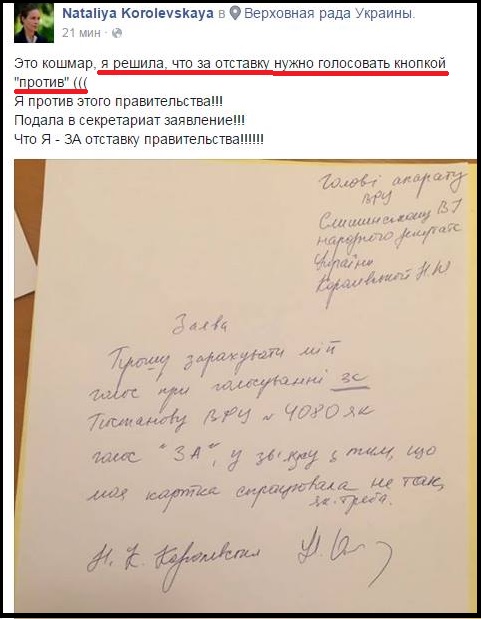 Nataliya Korolevskaya в Верховная рада Украины.
21 мин ·
Это кошмар, я решила, что за отставку нужно голосовать кнопкой
"против" (((
Я против этого правительства!!!
Подала в секретариат заявление!!!
Что Я - ЗА отставку правительства!!!!!!
Голові апарату
ВРУ
народного депутата
України
Королевської Н.Ю
Заява
Прошу зарахувати мій
голос при голосуванні за
Постанову ВРУ № 4080 як
голос "ЗА", у зв'язку з тим, що
моя картка спрацювала не так,
як треба.
Королевська